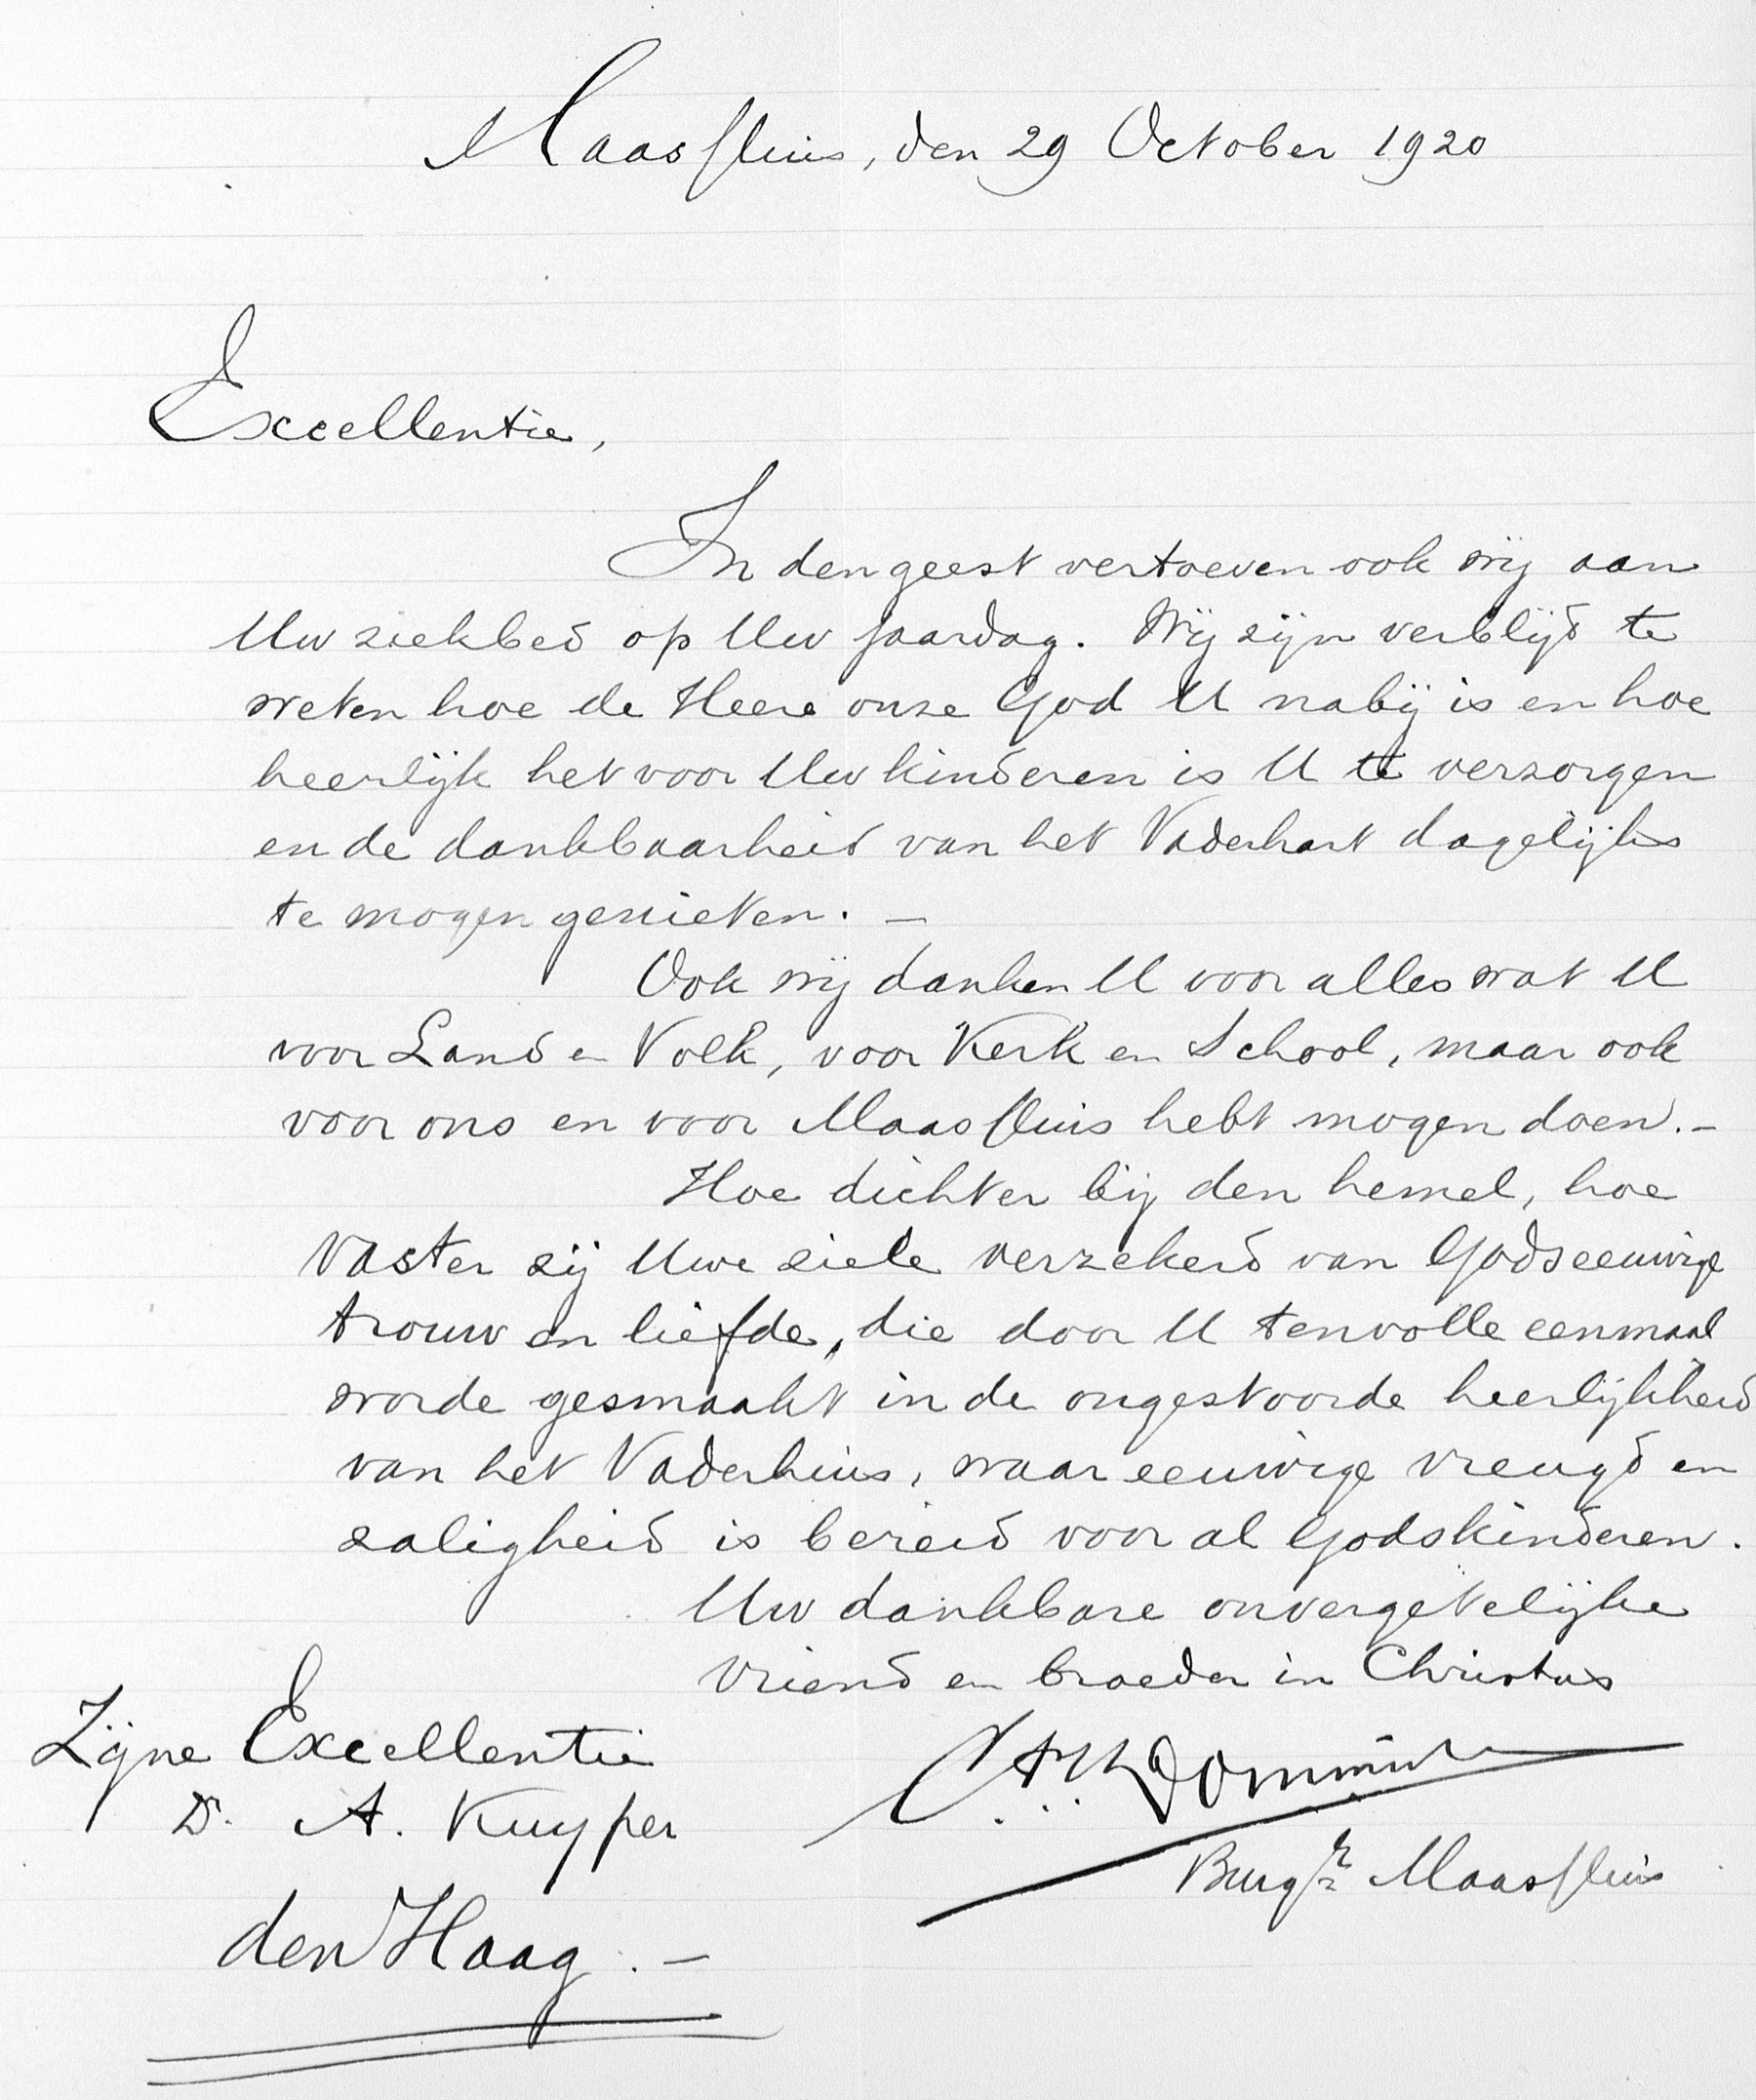 Maassluis, den 29 October 1920
Excellentie,
In den geest vertoeven ook wij aan
Uw ziekbed op Uw jaardag. Wij zijn verblijd te
weten hoe de Heere onze God U nabij is en hoe
heerlijk het voor Uw kinderen is U te verzorgen
en de dankbaarheid van het Vaderhart dagelijks
te mogen genieten. —
Ook wij danken U voor alles wat U
voor Land en Volk, voor Kerk en School, maar ook
voor ons en voor Maassluis hebt mogen doen. -
Hoe dichter bij den hemel, hoe
vaster zij Uwe ziele verzekerd van Gods eeuwige
trouw en liefde, die door U ten volle eenmaal
worde gesmaakt in de ongestoorde heerlijkheid
van het Vaderhuis, waar eeuwige vreugd en
zaligheid is bereid voor al Gods kinderen.
Uw dankbare onvergetelijke
vriend en broeder in Christus
Zijne Excellentie
Dr. A. Kuyper
Burgr Maassluis
den Haag. —